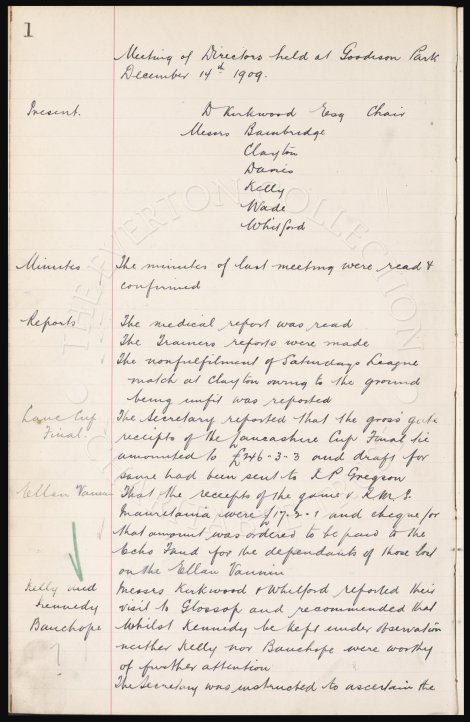 1
Meeting of Directors held at Goodison Park
December 14th 1909.
Present. D Kirkwood Esq Chair
Messrs Bainbridge
Clayton
Davies
Kelly
Wade
Whitford
Minutes The minutes of last meeting were read &
confirmed
Reports The medical report was read
The Trainers reports were made
The nonfulfilment of Saturdays League
match at Clayton owing to the ground
being unfit was reported
Lanc Cup The Secretary reported that the gross gate
Final. receipts of the Lancashire Cup Final tie
amounted to £246-3-3 and draft for
same had been sent to
Gregson
Ellan Vannin That the receipts of the game v R.M.S.
Mauretania were £17-2-1 and cheque for
that amount was ordered to be paid to the
Echo Fund for the dependants of those lost
on the Ellan Vannin
Kelly and Messrs Kirkwood & Whitford reported their
Kennedy visit to Glossop and recommended that
Bauchope Whilst Kennedy be kept under observation
? neither Kelly nor Bauchope were worthy
of further attention
The Secretary was instructed to ascertain the
THE EVERTON COLLECTION